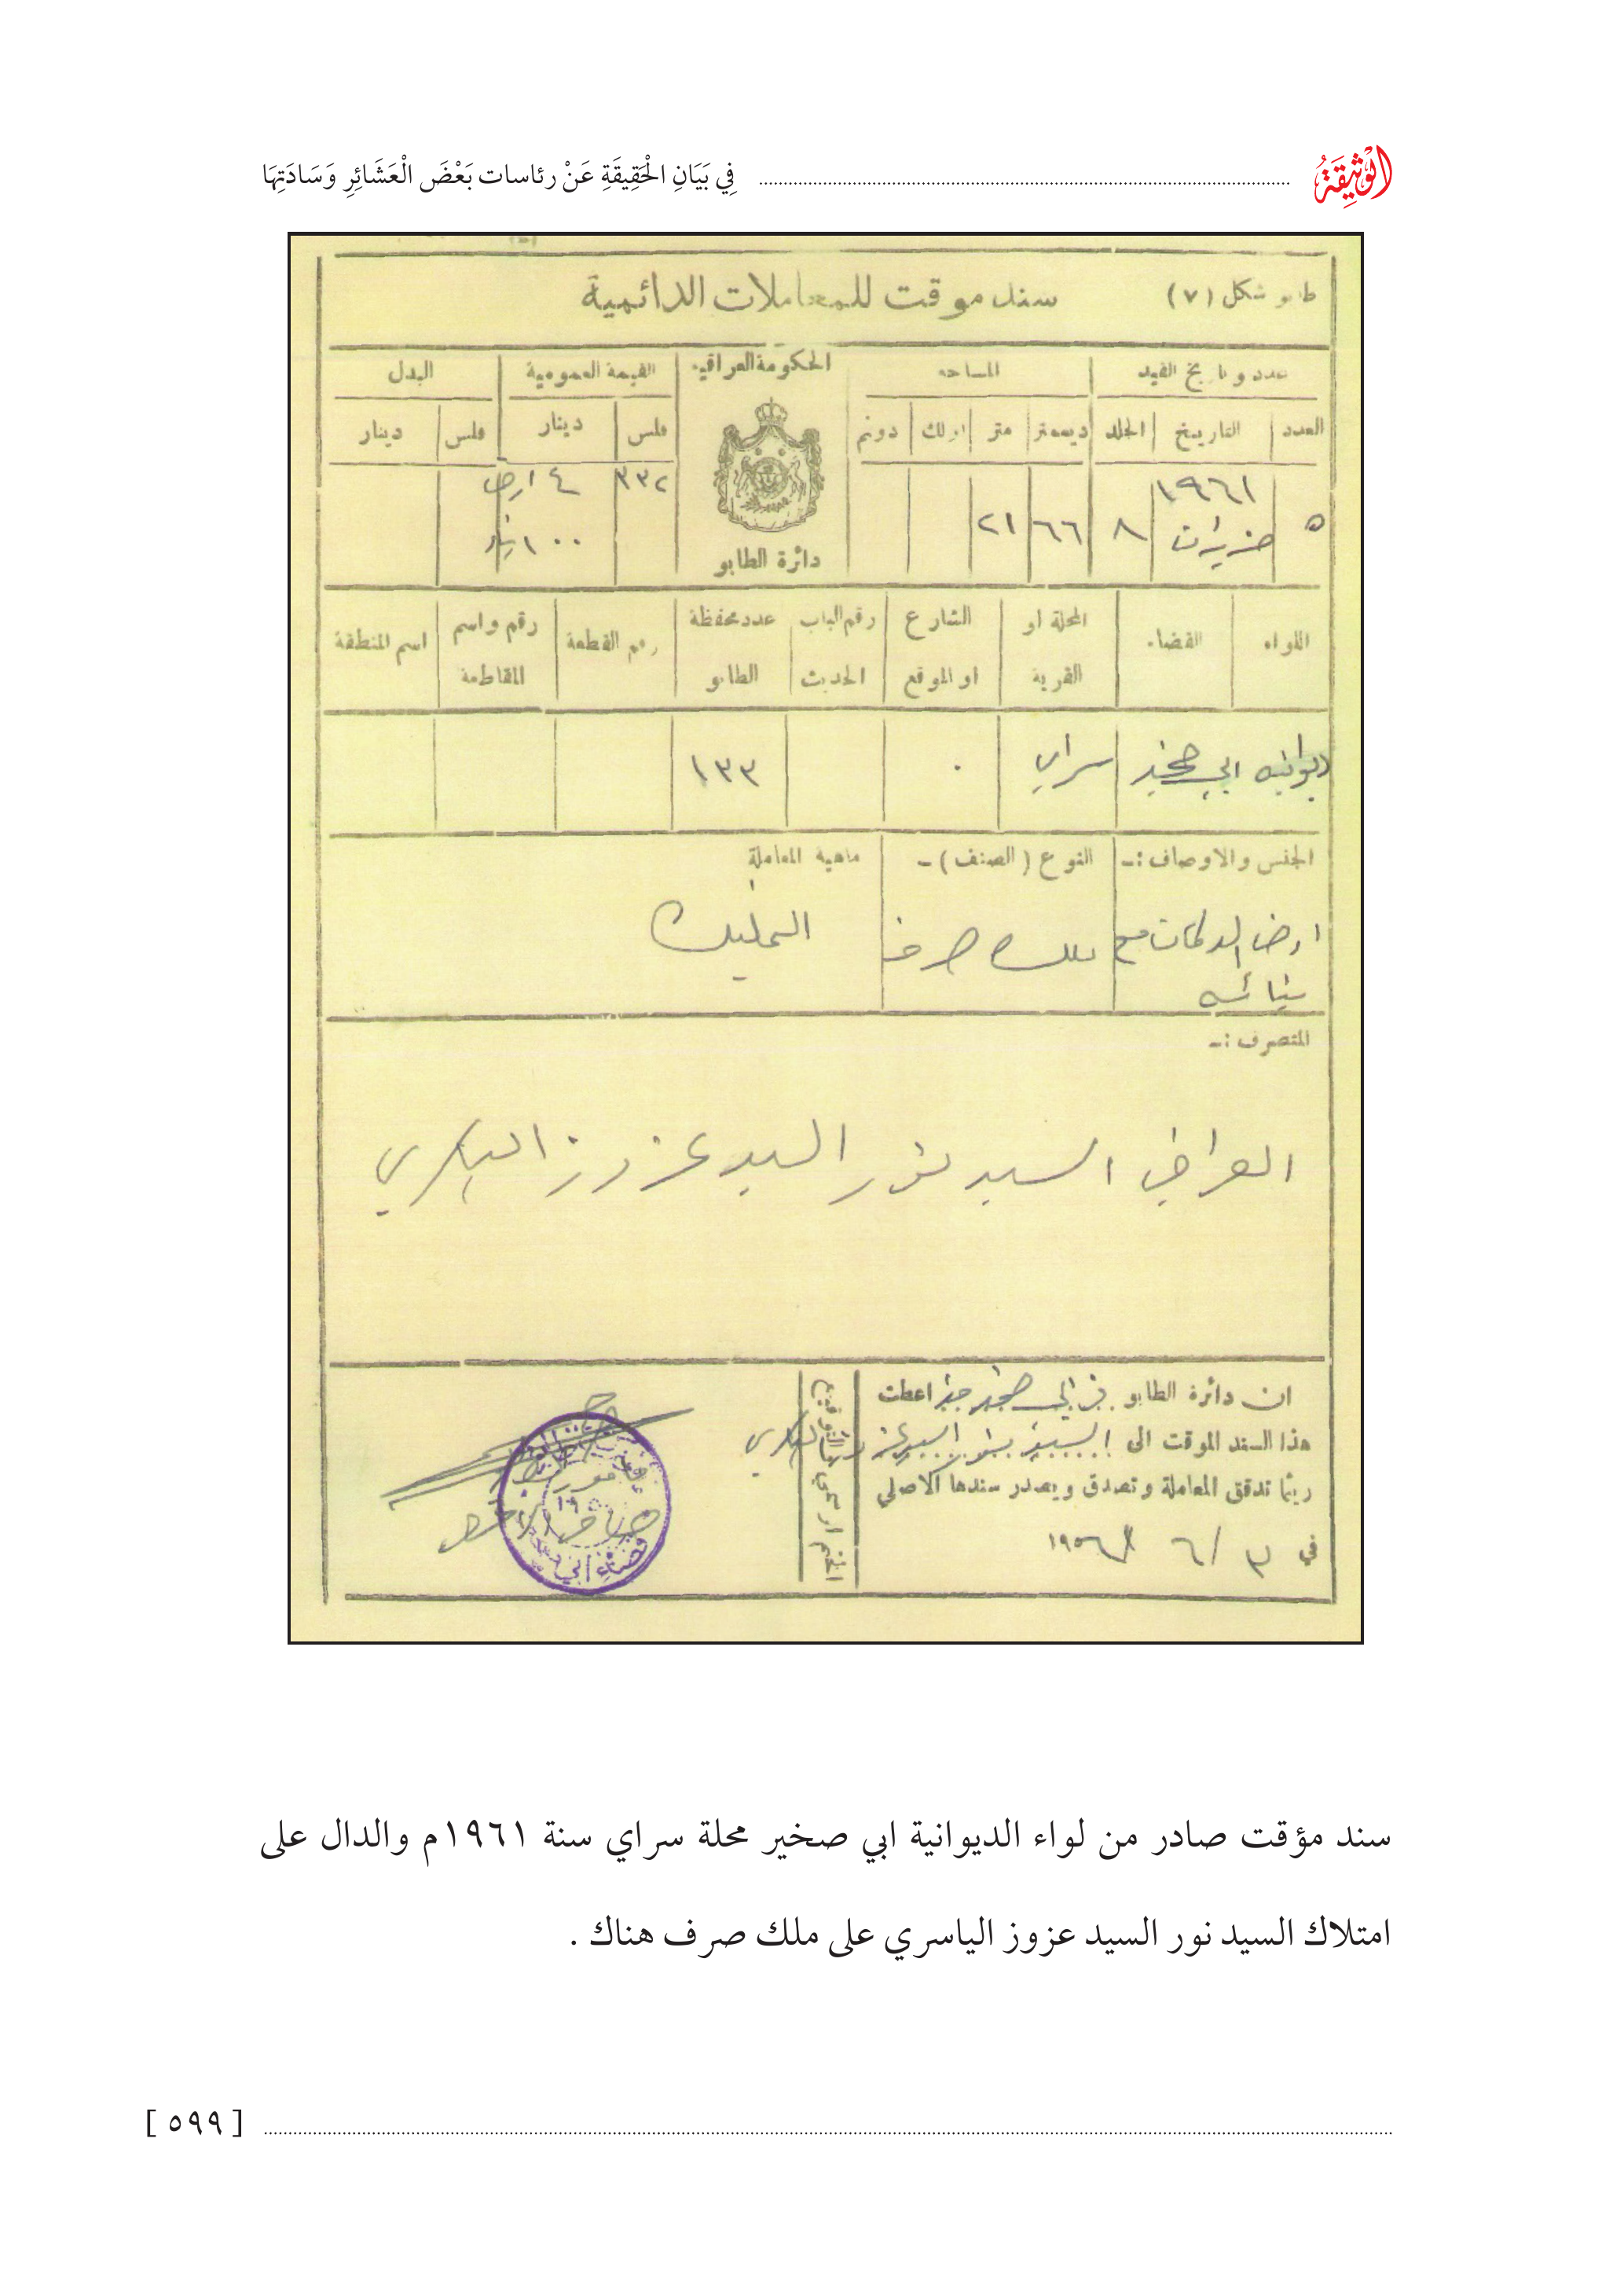 الْوَثِيقَةُ فِي بَيَانِ الْحَقِيقَةِ عَنْ رئاسات بَعْضَ الْعَشَائِرِ وَسَادَتِهَا
طابو شكل (٧) سند موقت للمعاملات الدائمية
عدد وتاريخ القيد المساحه الحكومة العراقية القيمة العمومية البدل
العدد التاريخ الجلد ديسمتر متر اولك دونم فلس دينار فلس دينار
٥ ١٩٦١ حزيران ٨ ٦٦ ٢١ ٣٣٢ ٤ ارض
١٠٠
دائرة الطابو
اللواء القضاء المحلة او القرية الشارع او الموقع رقم الباب الحديث عدد محفظة الطابو رقم القطعة رقم واسم المقاطعة اسم المنطقة
ديوانيه ابي صخير سراي ٠ ١٣٣
الجنس والاوصاف :- النوع (الصنف) - ماهية المعاملة
ارض مع ملك صرف التمليك
المتصرف :-
العراقي السيد نور السيد عزوز الياسري
ان دائرة الطابو في ابي صخير اعطت
هذا السند الموقت الى السيد نور السيد عزوز الياسري
ريثما تدقق المعاملة وتصدق ويصدر سندها الاصلي
في ٣ / ٦ / ١٩٥٦
الختم الرسمي
سند مؤقت صادر من لواء الديوانية ابي صخير محلة سراي سنة ١٩٦١م والدال على
امتلاك السيد نور السيد عزوز الياسري على ملك صرف هناك .
[ ٥٩٩ ]